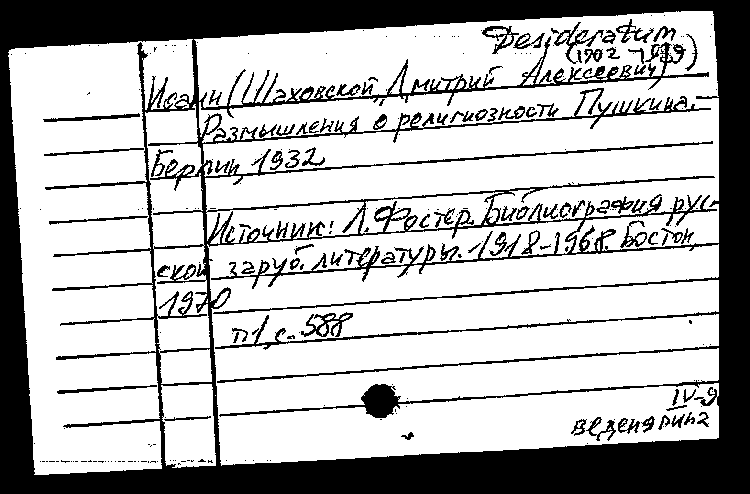 Desideratum
(1902-1989)
Иоанн (Шаховской, Дмитрий Алексеевич)
Размышления о религиозности Пушкина.-
Берлин, 1932
Источник: Л. Фостер. Библиография рус-
ской заруб. литературы. 1918-1968. Бостон,
1970
т1, с. 588
IV-9
Веденяпина